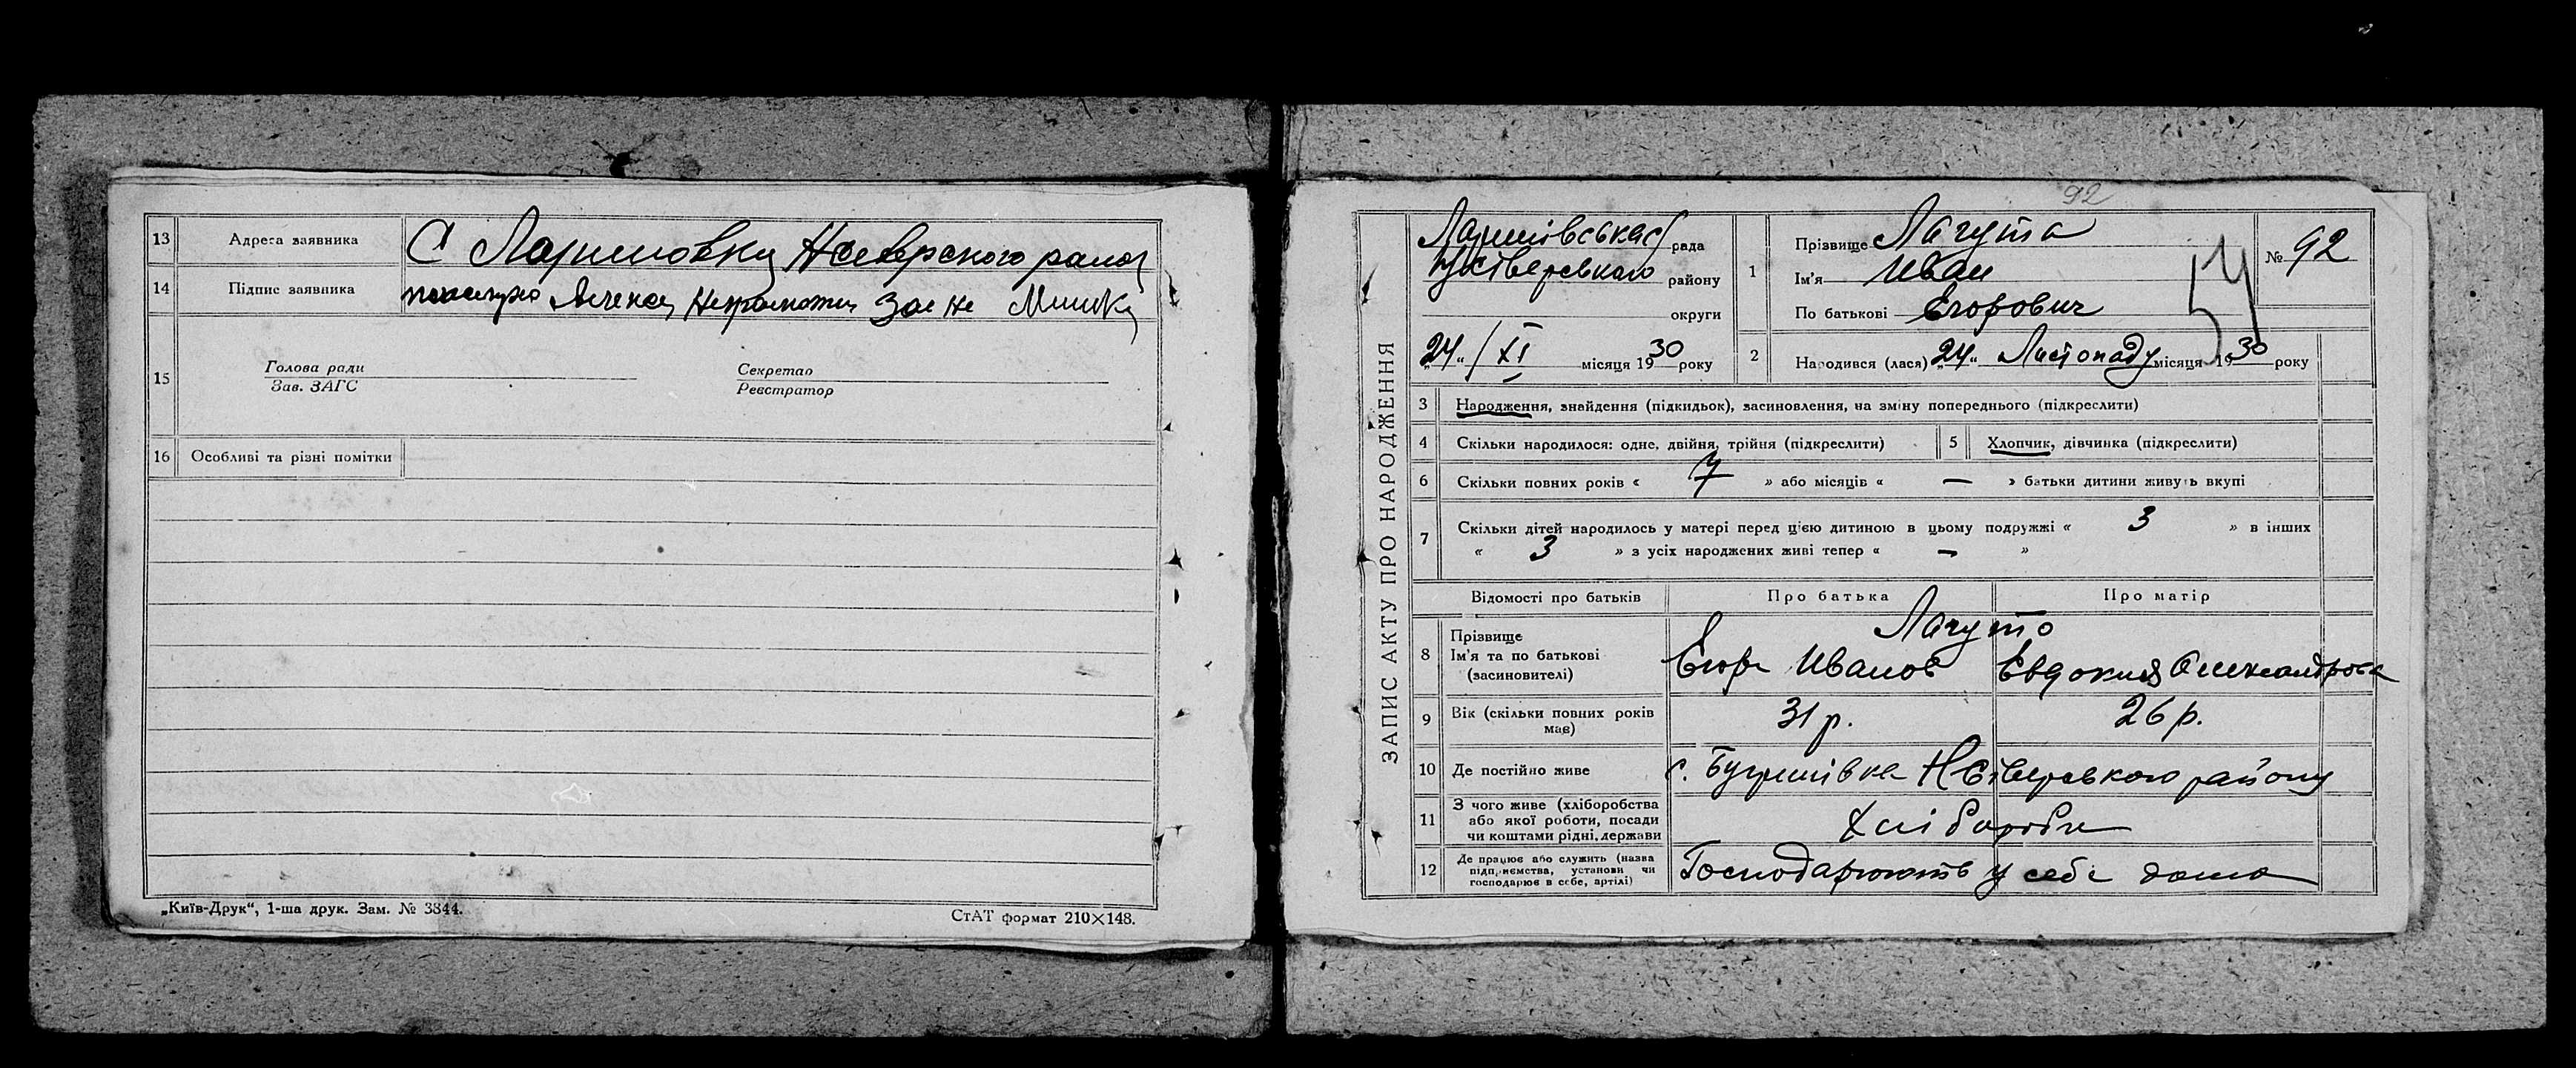 13 Адреса заявника С Лариновку Нсеверского района
14 Підпис заявника Алексей за не
15 Голова ради Секретар
Зав. ЗАГС Реєстратор
16 Особливі та різні помітки
„Київ-Друк“, 1-ша друк. Зам. № 3844. СтАТ формат 210×148.
92
ЗАПИС АКТУ ПРО НАРОДЖЕННЯ
Ларинівська с/рада
Нсіверського району
округи
„24“ / XI місяця 1930 року
1 Прізвище Лагута
Ім'я Иван
По батькові Егорович
№ 92
54
2 Народився (лася) „24“ Листопаду місяця 1930 року
3 Народження, знайдення (підкидьок), засиновлення, на зміну попереднього (підкреслити)
4 Скільки народилося: одне, двійня, трійня (підкреслити) 5 Хлопчик, дівчинка (підкреслити)
6 Скільки повних років « 7 » або місяців « — » батьки дитини живуть вкупі
7 Скільки дітей народилось у матері перед цією дитиною в цьому подружжі « 3 » в інших
« 3 » з усіх народжених живі тепер « — »
Відомості про батьків Про батька Про матір
8 Прізвище Лагута
Ім'я та по батькові Егор Иванов Евдокия Олександрова
(засиновителі)
9 Вік (скільки повних років має) 31 р. 26 р.
10 Де постійно живе с. Бугринівка НСіверського району
11 З чого живе (хліборобства
або якої роботи, посади
чи коштами рідні, держави Хлібороби
12 Де працює або служить (назва
підприємства, установи чи
господарює в себе, артілі) Господарюють у себе дома